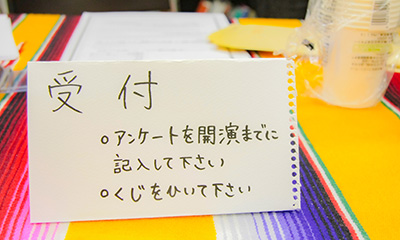 受付
○アンケートを開演までに
記入して下さい
○くじをひいて下さい